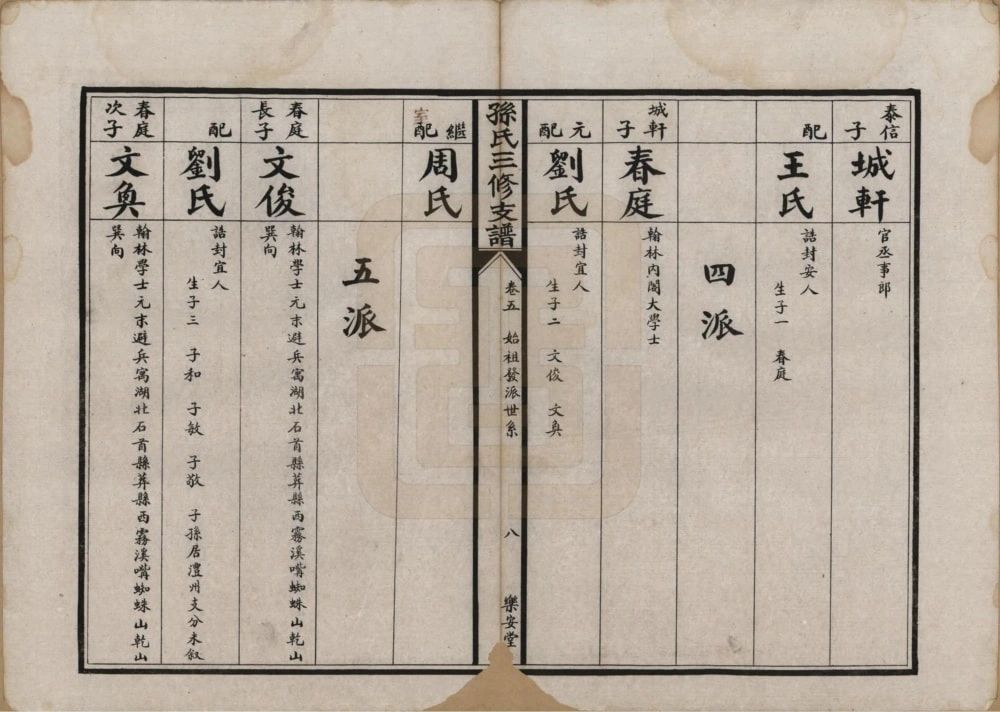 泰信子 城軒 官丞事郎
配 王氏 誥封安人 生子一 春庭
四派
城軒子 春庭 翰林內閣大學士
元配 劉氏 誥封宜人 生子二 文俊 文奐
孫氏三修支譜 卷五 始祖發派世系 八 樂安堂
繼配 周氏
五派
春庭長子 文俊 翰林學士元末避兵寓湖北石首縣葬縣西霧溪嘴蜘蛛山乾山巽向
配 劉氏 誥封宜人 生子三 子和 子敏 子敬 子孫居澧州支分未叙
春庭次子 文奐 翰林學士元末避兵寓湖北石首縣葬縣西霧溪嘴蜘蛛山乾山巽向